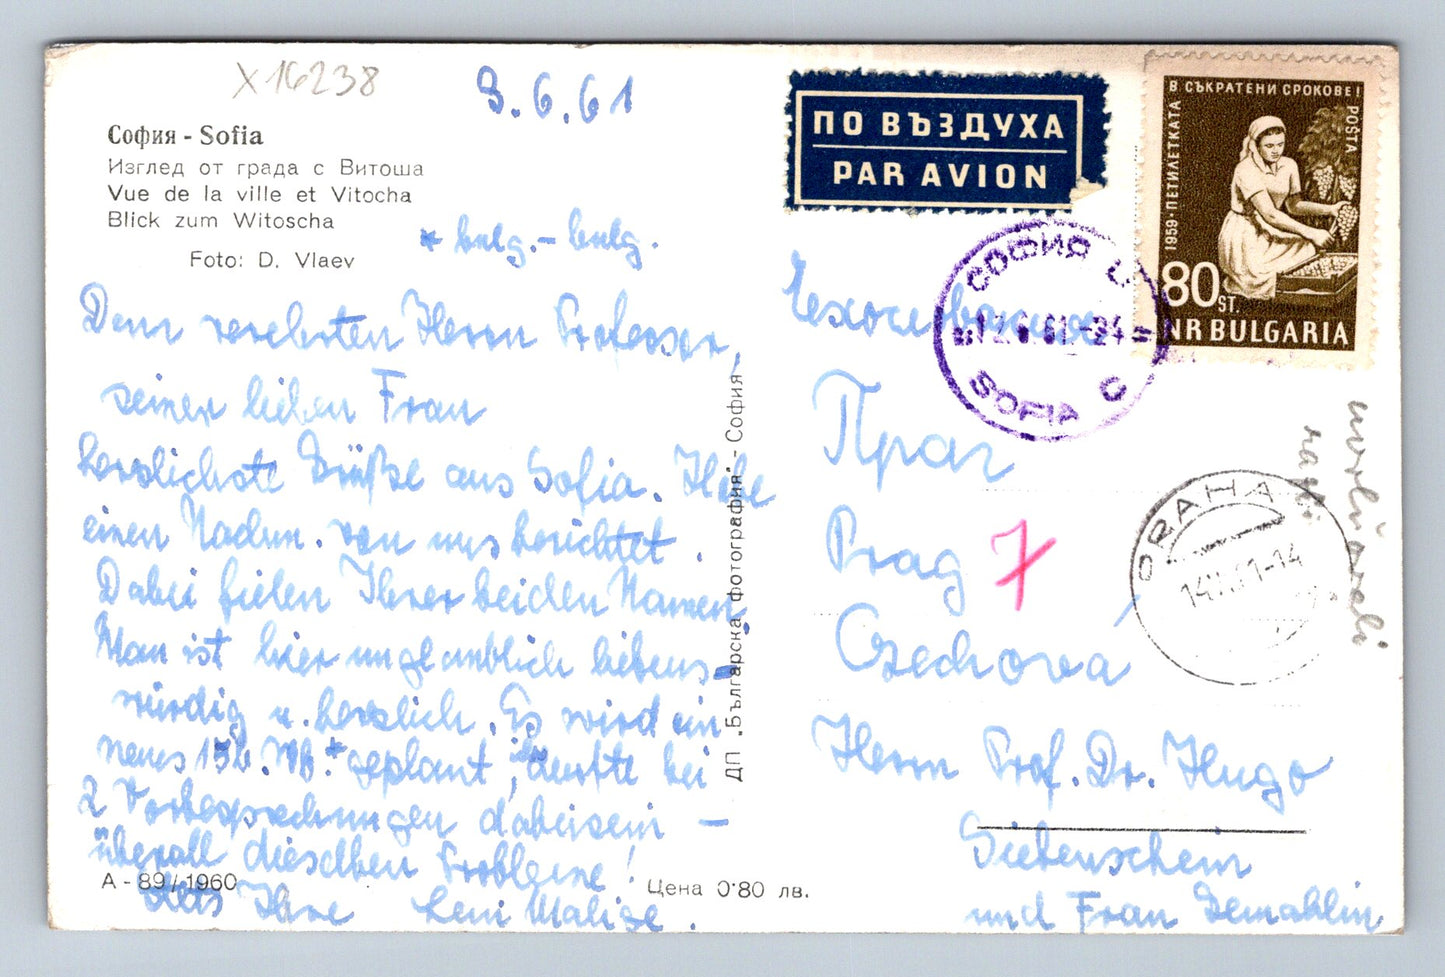 X 16238
9.6.61
София - Sofia
Изглед от града с Витоша
Vue de la ville et Vitocha
Blick zum Witoscha
Foto: D. Vlaev
* bulg.-bulg.
Dem verehrten Herrn Professor,
seiner lieben Frau
herzlichste Grüße aus Sofia. Habe
einen Nachm. von uns berichtet.
Dabei fielen Ihrer beiden Namen.
Man ist hier unglaublich liebens-
würdig u. herzlich. Es wird ein
neues Wb.* geplant, durfte bei
2 Vorbesprechungen dabeisein –
überall dieselben Probleme!
А - 89 / 1960
Ihre Leni
Цена 0·80 лв.
ДП „Българска фотография" - София
ПО ВЪЗДУХА
PAR AVION
В СЪКРАТЕНИ СРОКОВЕ!
1959 · ПЕТИЛЕТКАТА
POŠTA
80 ST.
NR BULGARIA
СОФИЯ Ц
12.6.61.-24
SOFIA C
Праг
Prag 7
PRAHA
61-14
Herrn Prof. Dr. Hugo
Siebenschein
und Frau Gemahlin